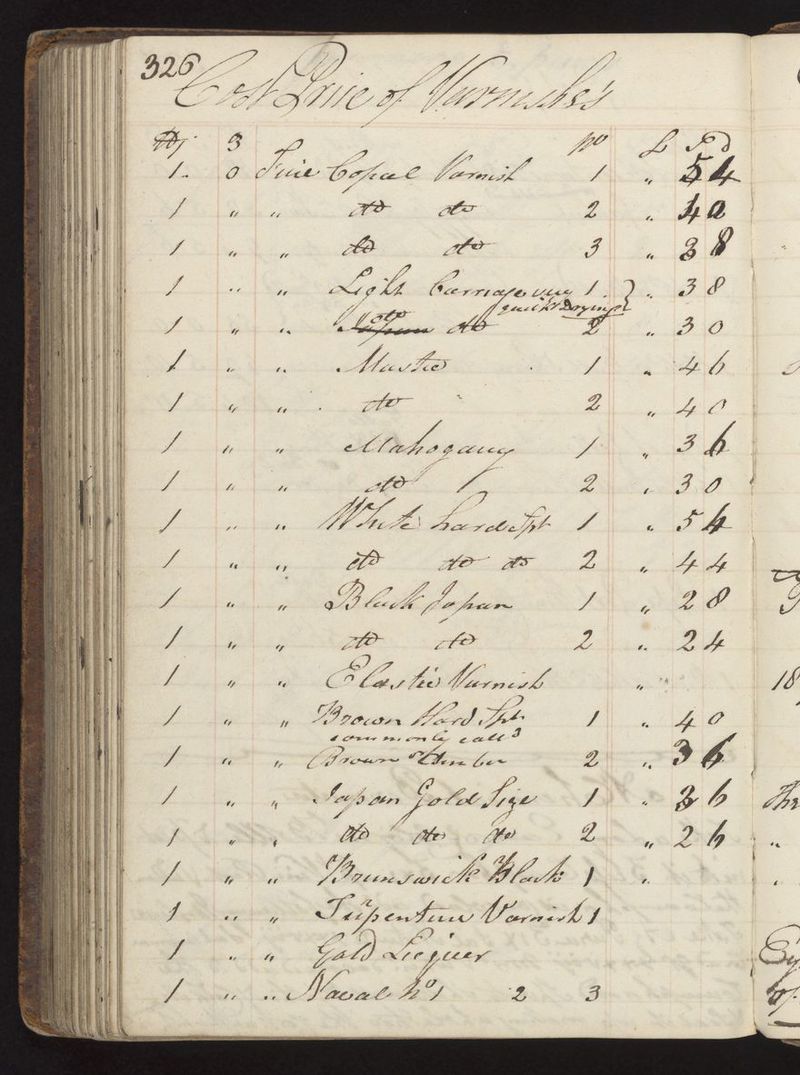 326
Cost Price of Varnishes's
lb 3 No £ S d
1 - 0 Fine Copal Varnish 1 " 5 4
1 " " do do 2 " 4 0
1 " " do do 3 " 3 8
1 " " Light Carriage 1 " 3 8
quick Drying
1 " " do do 2 " 3 0
1 " " Mastic 1 " 4 6
1 " " do 2 " 4 0
1 " " Mahogany 1 " 3 6
1 " " do 2 " 3 0
1 " " White hard Spt 1 " 5 4
1 " " do do do 2 " 4 4
1 " " Black Japan 1 " 2 8
1 " " do do 2 " 2 4
1 " " Elastic Varnish "
1 " " Brown Hard Spt 1 " 4 0
commonly calld
1 " " Brown Umber 2 " 3 6
1 " " Japan Gold Size 1 " 3 6
1 " " do do do 2 " 2 6
1 " " Brunswick Black 1 "
1 " " Turpentine Varnish 1
1 " " Gold Liquer
1 " " Naval No 1 2 3
18